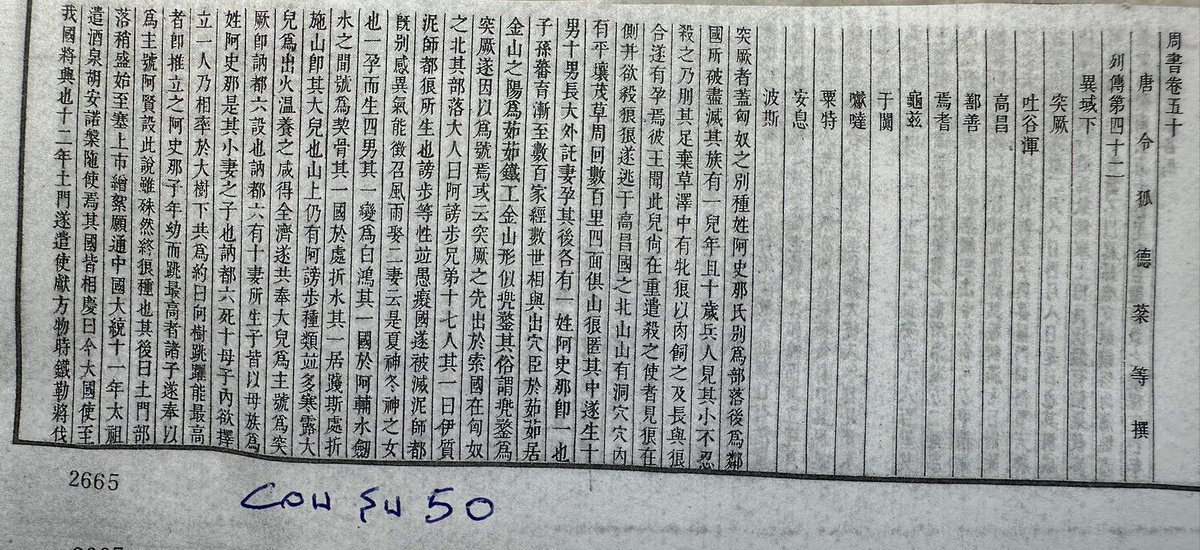 周書卷五十
唐令狐德棻等撰
列傳第四十二
異域下
突厥
吐谷渾
高昌
鄯善
焉耆
龜茲
于闐
囐噠
粟特
安息
波斯
突厥者蓋匈奴之別種姓阿史那氏別爲部落後爲鄰
國所破盡滅其族有一兒年且十歲兵人見其小不忍
殺之乃刖其足棄草澤中有牝狼以肉飼之及長與狼
合遂有孕焉彼王聞此兒尙在重遣殺之使者見狼在
側并欲殺狼狼遂逃于高昌國之北山山有洞穴穴內
有平壤茂草周回數百里四面俱山狼匿其中遂生十
男十男長大外託妻孕其後各有一姓阿史那卽一也
子孫蕃育漸至數百家經數世相與出穴臣於茹茹居
金山之陽爲茹茹鐵工金山形似兜鍪其俗謂兜鍪爲
突厥遂因以爲號焉或云突厥之先出於索國在匈奴
之北其部落大人曰阿謗步兄弟十七人其一曰伊質
泥師都狼所生也謗步等性並愚癡國遂被滅泥師都
旣別感異氣能徵召風雨娶二妻云是夏神冬神之女
也一孕而生四男其一變爲白鴻其一國於阿輔水劒
水之間號爲契骨其一國於處折水其一居踐斯處折
施山卽其大兒也山上仍有阿謗步種類並多寒露大
兒爲出火溫養之咸得全濟遂共奉大兒爲主號爲突
厥卽訥都六設也訥都六有十妻所生子皆以母族爲
姓阿史那是其小妻之子也訥都六死十母子內欲擇
立一人乃相率於大樹下共爲約曰向樹跳躍能最高
者卽推立之阿史那子年幼而跳最高者諸子遂奉以
爲主號阿賢設此說雖殊然終狼種也其後曰土門部
落稍盛始至塞上市繒絮願通中國大統十一年太祖
遣酒泉胡安諾槃陁使焉其國皆相慶曰今大國使至
我國將興也十二年土門遂遣使獻方物時鐵勒將伐
2665
Cou Şu 50